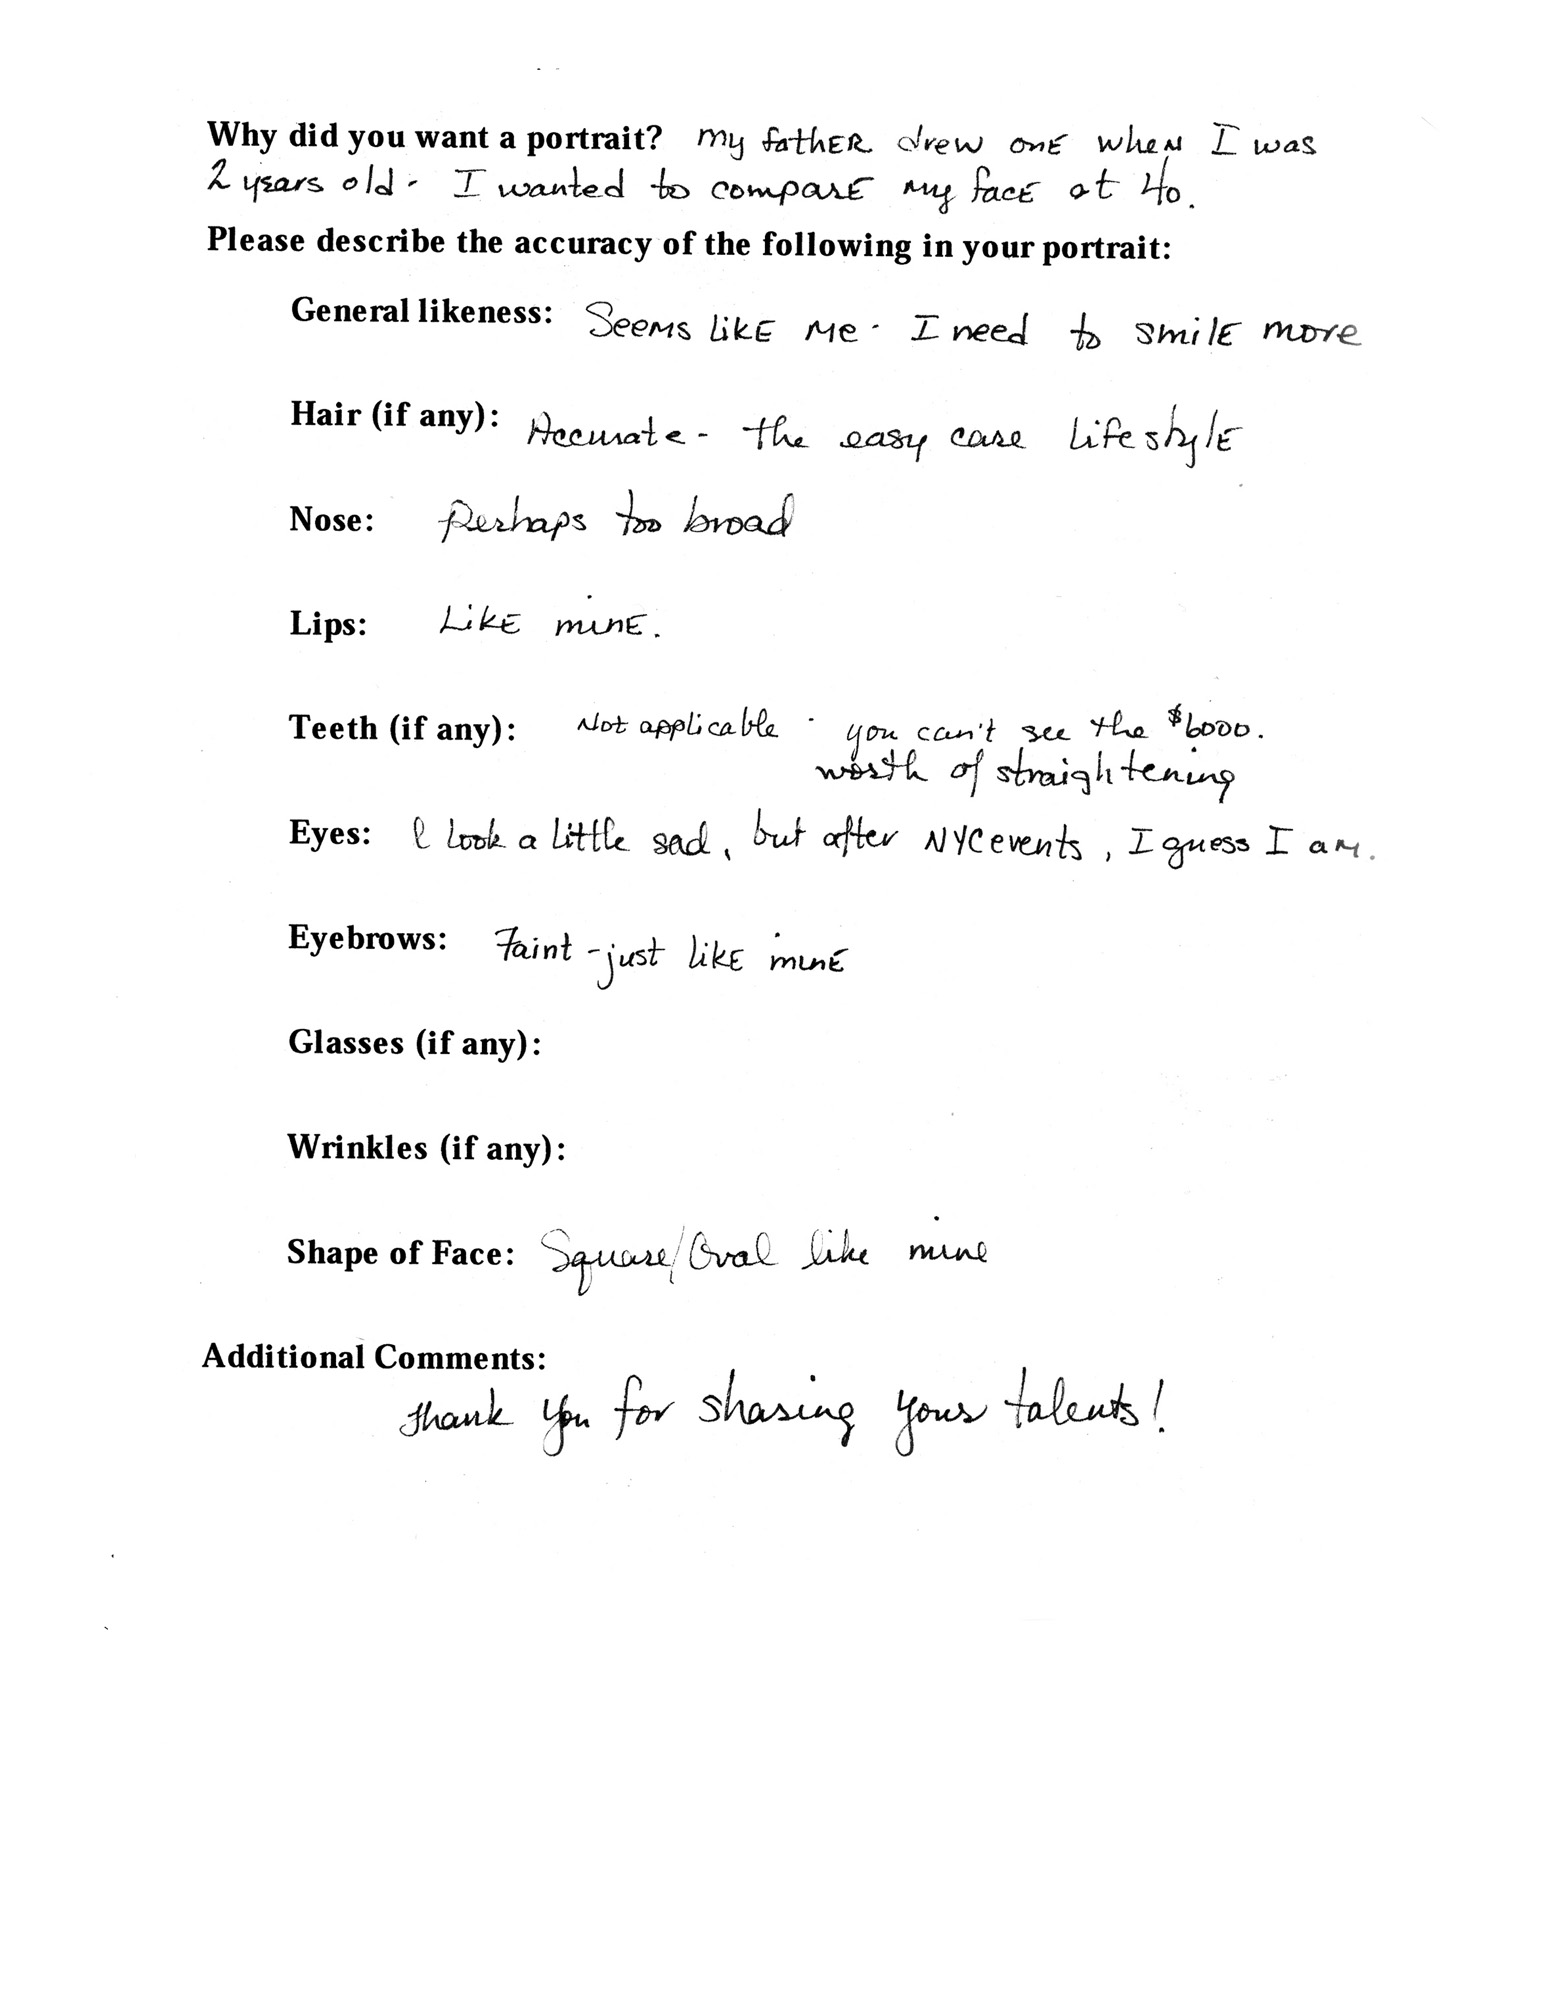 Why did you want a portrait? My father drew one when I was
2 years old - I wanted to compare my face at 40.
Please describe the accuracy of the following in your portrait:
General likeness: Seems like me - I need to smile more
Hair (if any): Accurate - the easy care lifestyle
Nose: Perhaps too broad
Lips: Like mine.
Teeth (if any): Not applicable - you can't see the $6000.
worth of straightening
Eyes: I look a little sad, but after NYC events, I guess I am.
Eyebrows: Faint - just like mine
Glasses (if any):
Wrinkles (if any):
Shape of Face: Square/Oval like mine
Additional Comments:
Thank you for sharing your talents!